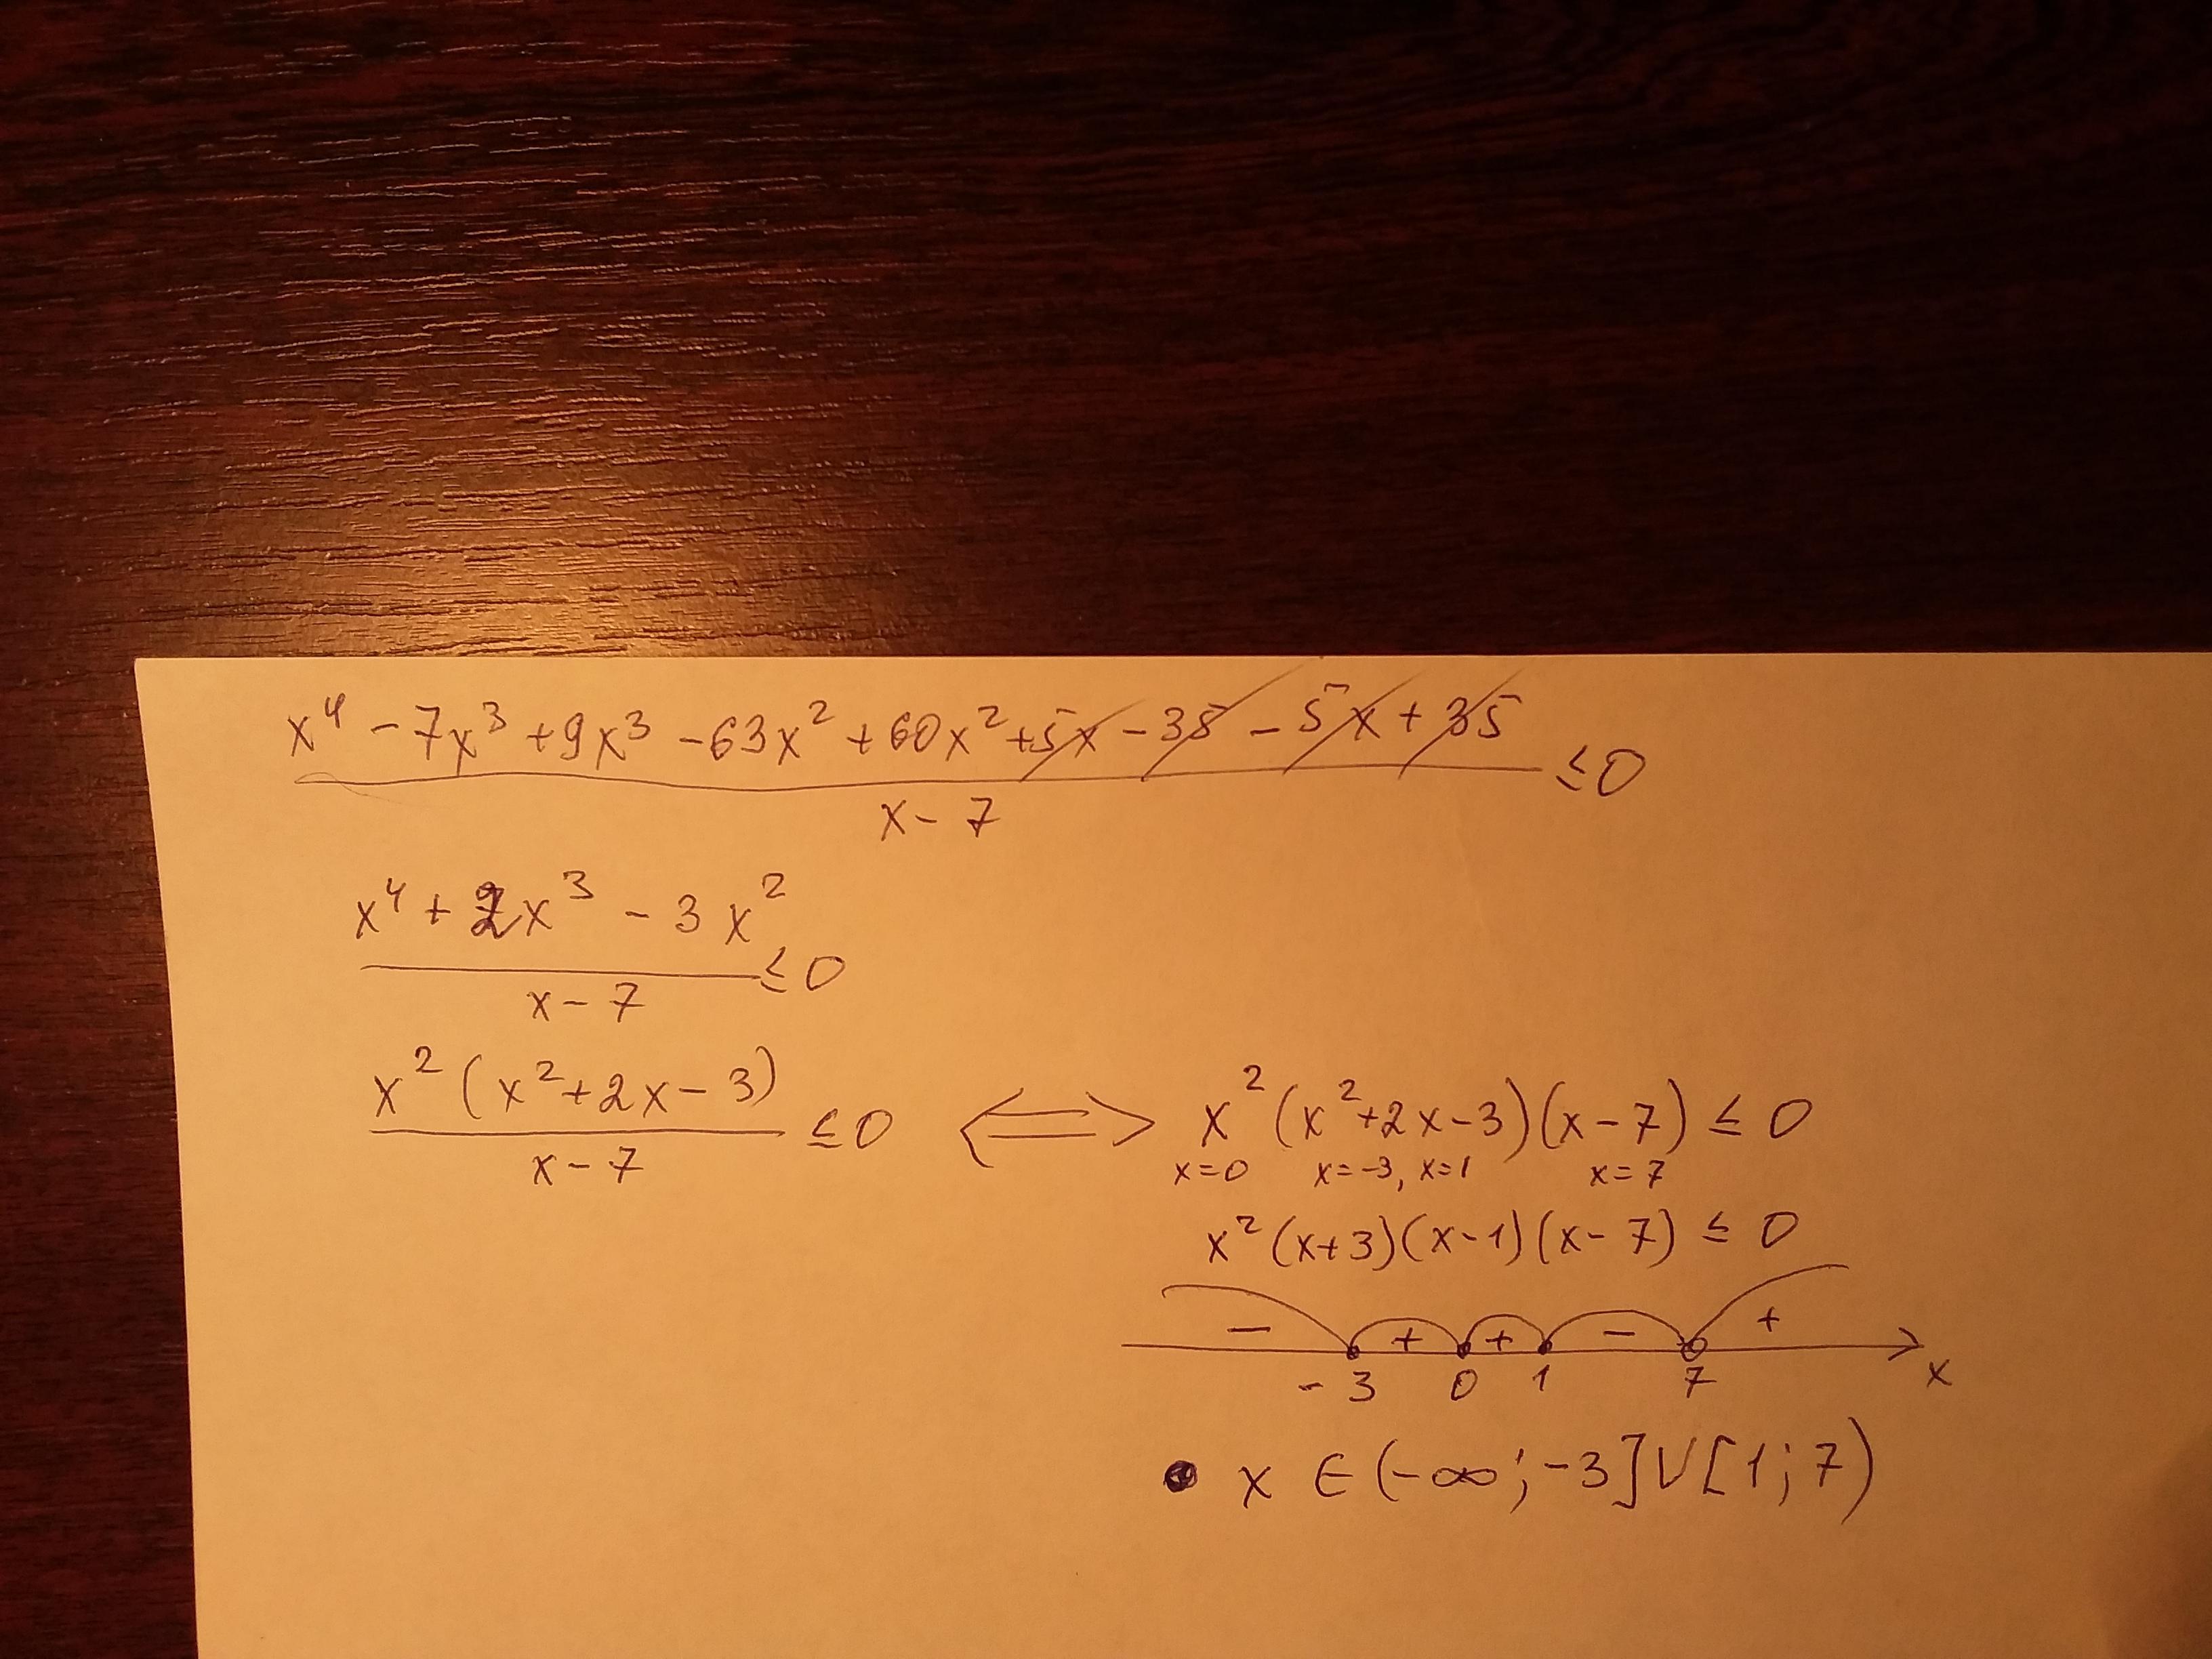 x⁴ - 7x³ + 9x³ - 63x² + 60x² + 5x - 35 - 5x + 35
≤0
x - 7
x⁴ + 2x³ - 3x²
≤0
x - 7
x²(x² + 2x - 3)
≤0
x - 7
⟺ x²(x² + 2x - 3)(x - 7) ≤ 0
x=0 x=-3, x=1 x=7
x²(x+3)(x-1)(x-7) ≤ 0
- + + - +
-3 0 1 7 x
• x ∈ (-∞; -3] ∪ [1; 7)